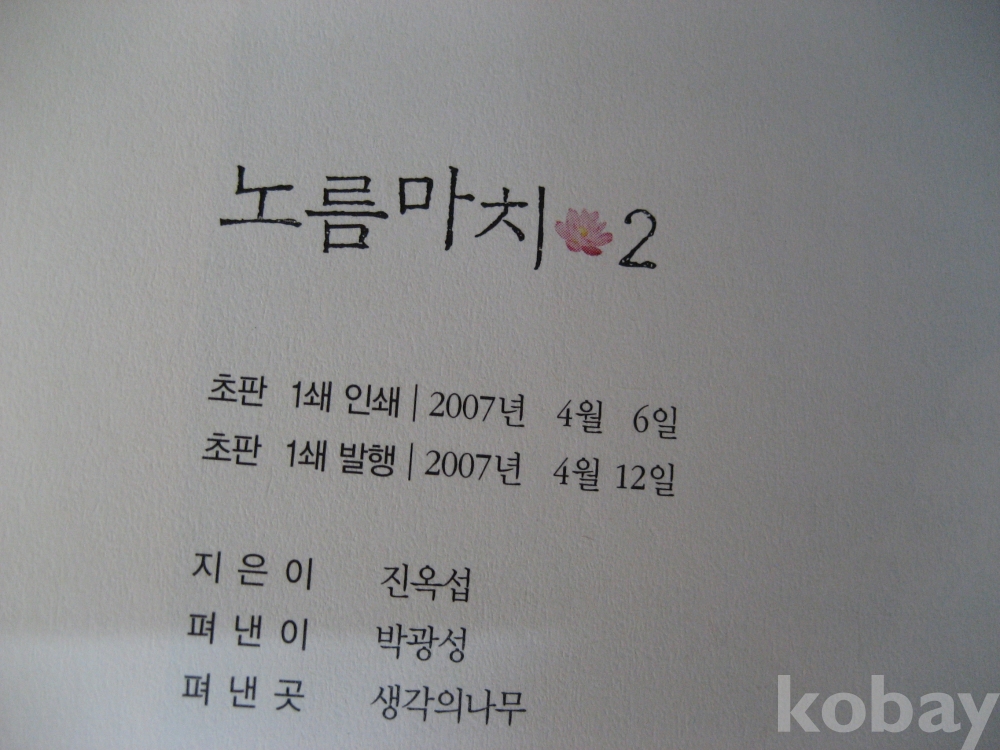 노름마치 2
초판 1쇄 인쇄 | 2007년 4월 6일
초판 1쇄 발행 | 2007년 4월 12일
지은이 진옥섭
펴낸이 박광성
펴낸곳 생각의나무
kobay